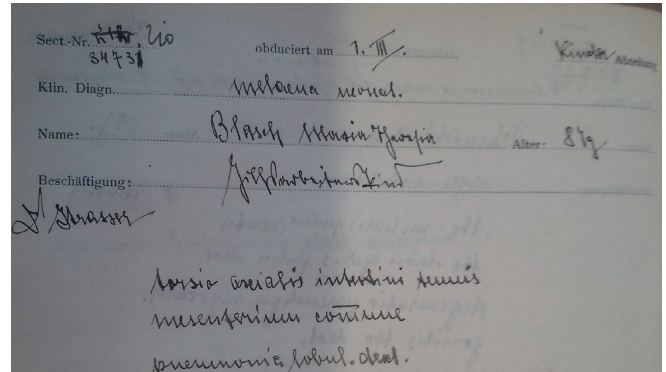 Sect.-Nr. 210 obduciert am 1. III. Kinder Abteilung
34731
Klin. Diagn. Melaena neonat.
Name: Blasch Maria Theresia Alter: 8 Tg
Beschäftigung: Hilfsarbeiterskind
Dr Strasser
torsio axialis intestini tenuis
mesenterium com̅une
pneumonia lobul. dext.